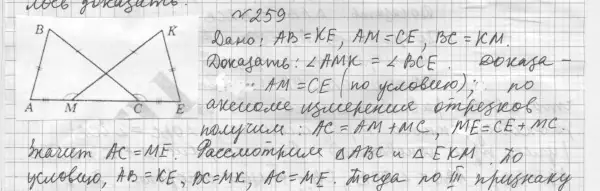 лось доказать.
№259
B K
Дано: AB=KE, AM=CE, BC=KM.
Доказать: ∠AMK = ∠BCE. Доказа-
AM=CE (по условию); по
A M C E
аксиоме измерения отрезков
получим: AC=AM+MC, ME=CE+MC.
Значит AC=ME. Рассмотрим △ABC и △EKM. По
условию, AB=KE, BC=MK, AC=ME. Тогда по III признаку